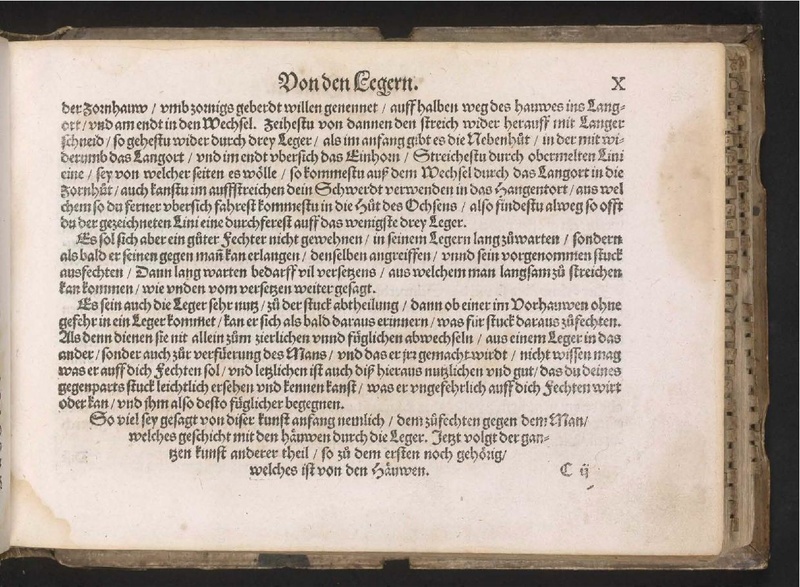 Von den Legern. X
der Zornhauw / vmb zornigs geberdt willen genennet / auff halben weg des hauwes ins Lang-
ort / vnd am endt in den Wechsel. Zeihestu von dannen den streich wider herauff mit Langer
schneid / so gehestu wider durch drey Leger / als im anfang gibt es die Nebenhůt / in der mit wi-
derumb das Langort / vnd im endt vbersich das Einhorn / Streichestu durch obermelten Lini
eine / sey von welcher seiten es wölle / so kommestu auß dem Wechsel durch das Langort in die
Zornhůt / auch kanstu im auffstreichen dein Schwerdt verwenden in das Hangentort / aus wel
chem so du ferner vbersich fahrest kommestu in die Hůt des Ochsens / also findestu alweg so offt
du der gezeichneten Lini eine durchferest auff das wenigste drey Leger.
Es sol sich aber ein gůter Fechter nicht gewehnen / in seinem Legern lang zůwarten / sondern
als bald er seinen gegen mañ kan erlangen / denselben angreiffen / vnnd sein vorgenommen stuck
ausfechten / Dann lang warten bedarff vil versetzens / aus welchem man langsam zů streichen
kan kommen / wie vnden vom versetzen weiter gesagt.
Es sein auch die Leger sehr nutz / zů der stuck abtheilung / dann ob einer im Vorhauwen ohne
gefehr in ein Leger kommet / kan er sich als bald daraus erinnern / was für stuck daraus zůfechten.
Als denn dienen sie nit allein zům zierlichen vnnd fůglichen abwechseln / aus einem Leger in das
ander / sonder auch zůr verfüerung des Mans / vnd das er jrr gemacht wirdt / nicht wissen mag
was er auff dich Fechten sol / vnd letzlichen ist auch diß hieraus nutzlichen vnd gut / das du deines
gegenparts stuck leichtlich ersehen vnd kennen kanst / was er vngefehrlich auff dich Fechten wirt
oder kan / vnd jhm also desto fůglicher begegnen.
So viel sey gesagt von diser kunst anfang nemlich / dem zůfechten gegen dem Man /
welches geschicht mit den häuwen durch die Leger. Jetzt volgt der gan-
tzen kunst anderer theil / so zů dem ersten noch gehörig /
welches ist von den Häuwen. C ij